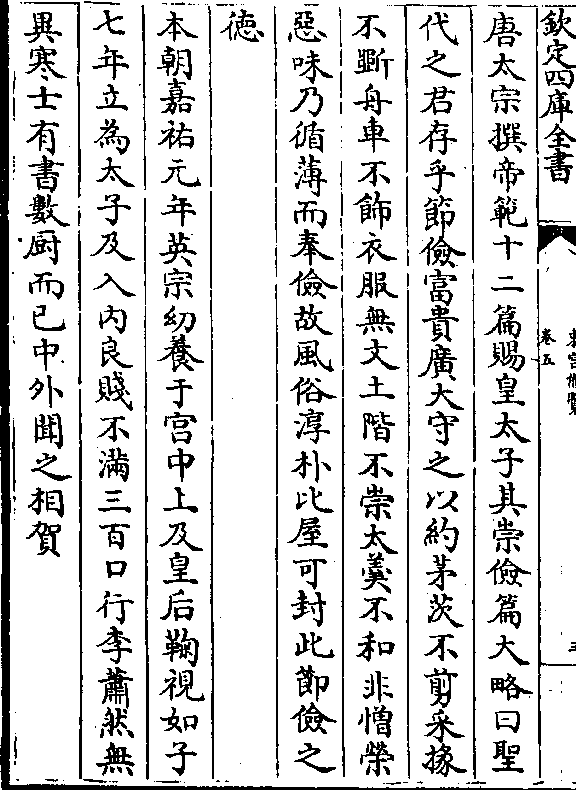 欽定四庫全書
卷五
唐太宗撰帝範十二篇賜皇太子其崇儉篇大略曰聖
代之君存乎節儉富貴廣大守之以約茅茨不剪采椽
不斵舟車不飾衣服無文土階不崇太羹不和非憎榮
惡味乃循薄而奉儉故風俗淳朴比屋可封此節儉之
德
本朝嘉祐元年英宗幼養于宮中上及皇后鞠視如子
七年立為太子及入内良賤不滿三百口行李蕭然無
異寒士有書數厨而已中外聞之相賀